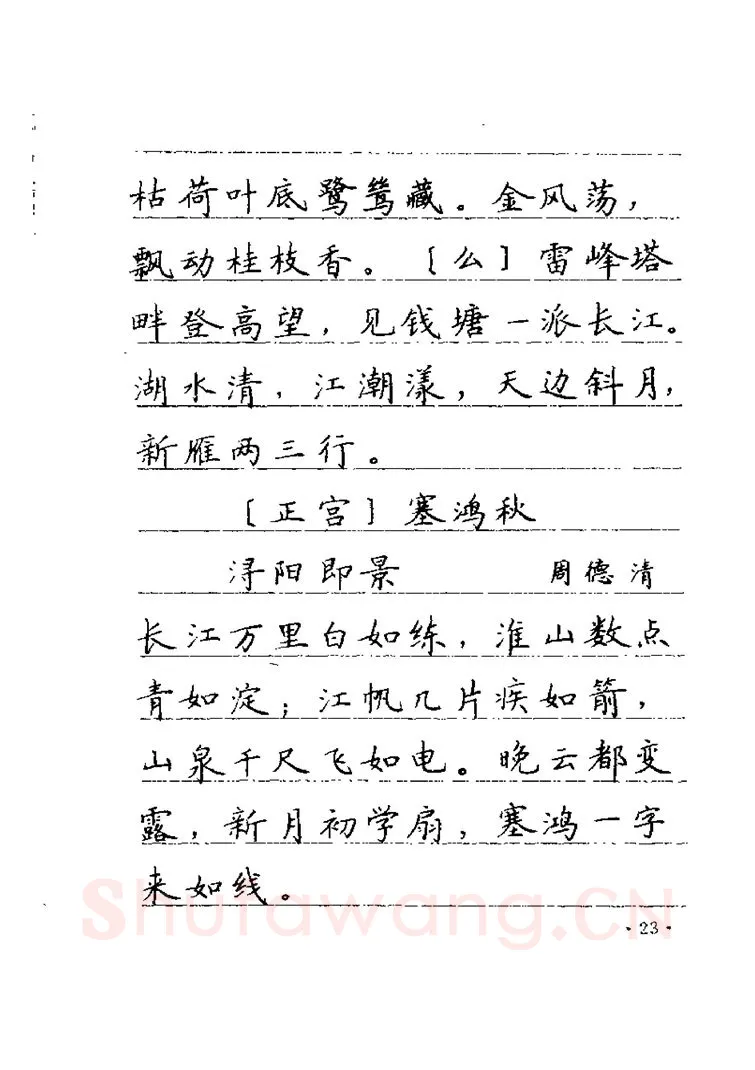 枯荷叶底鹭鸶藏。金风荡，
飘动桂枝香。［么］雷峰塔
畔登高望，见钱塘一派长江。
湖水清，江潮漾，天边斜月，
新雁两三行。
［正宫］塞鸿秋
浔阳即景 周德清
长江万里白如练，淮山数点
青如淀；江帆几片疾如箭，
山泉千尺飞如电。晚云都变
露，新月初学扇，塞鸿一字
来如线。
Shufawang.CN
·23·